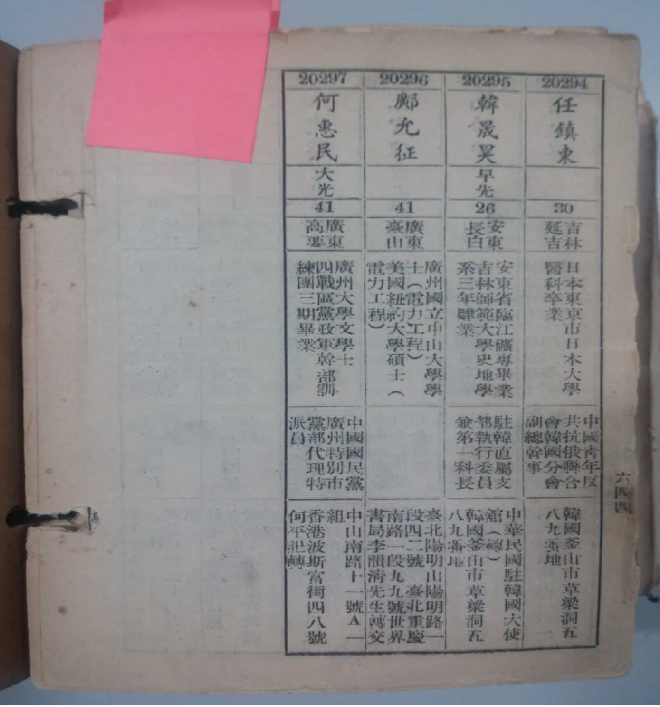 20294
任鎮東
30
吉林
延吉
日本東京市日本大學
醫科卒業
中國青年反
共抗俄聯合
會韓國分會
副總幹事
韓國釜山市草梁洞五
八九番地
20295
韓晟昊
早先
26
安東
長白
安東省臨江礦專畢業
吉林師範大學史地學
系三年肄業
駐韓直屬支
部執行委員
兼第一科長
中華民國駐韓國大使
館(轉)
韓國釜山市草梁洞五
八九番地
20296
鄺允征
41
廣東
臺山
廣州國立中山大學學
士(電力工程)
美國紐約大學碩士(
電力工程)
臺北陽明山陽明路一
段四二號 臺北重慶
南路一段九九號世界
書局李韻清先生轉交
20297
何惠民
大光
41
廣東
高要
廣州大學文學士
四戰區黨政軍幹部訓
練團三期畢業
中國國民黨
廣州特別市
黨部代理特
派員
中山南路十一號A一
組
香港波斯富街四八號
何平記轉
六四四